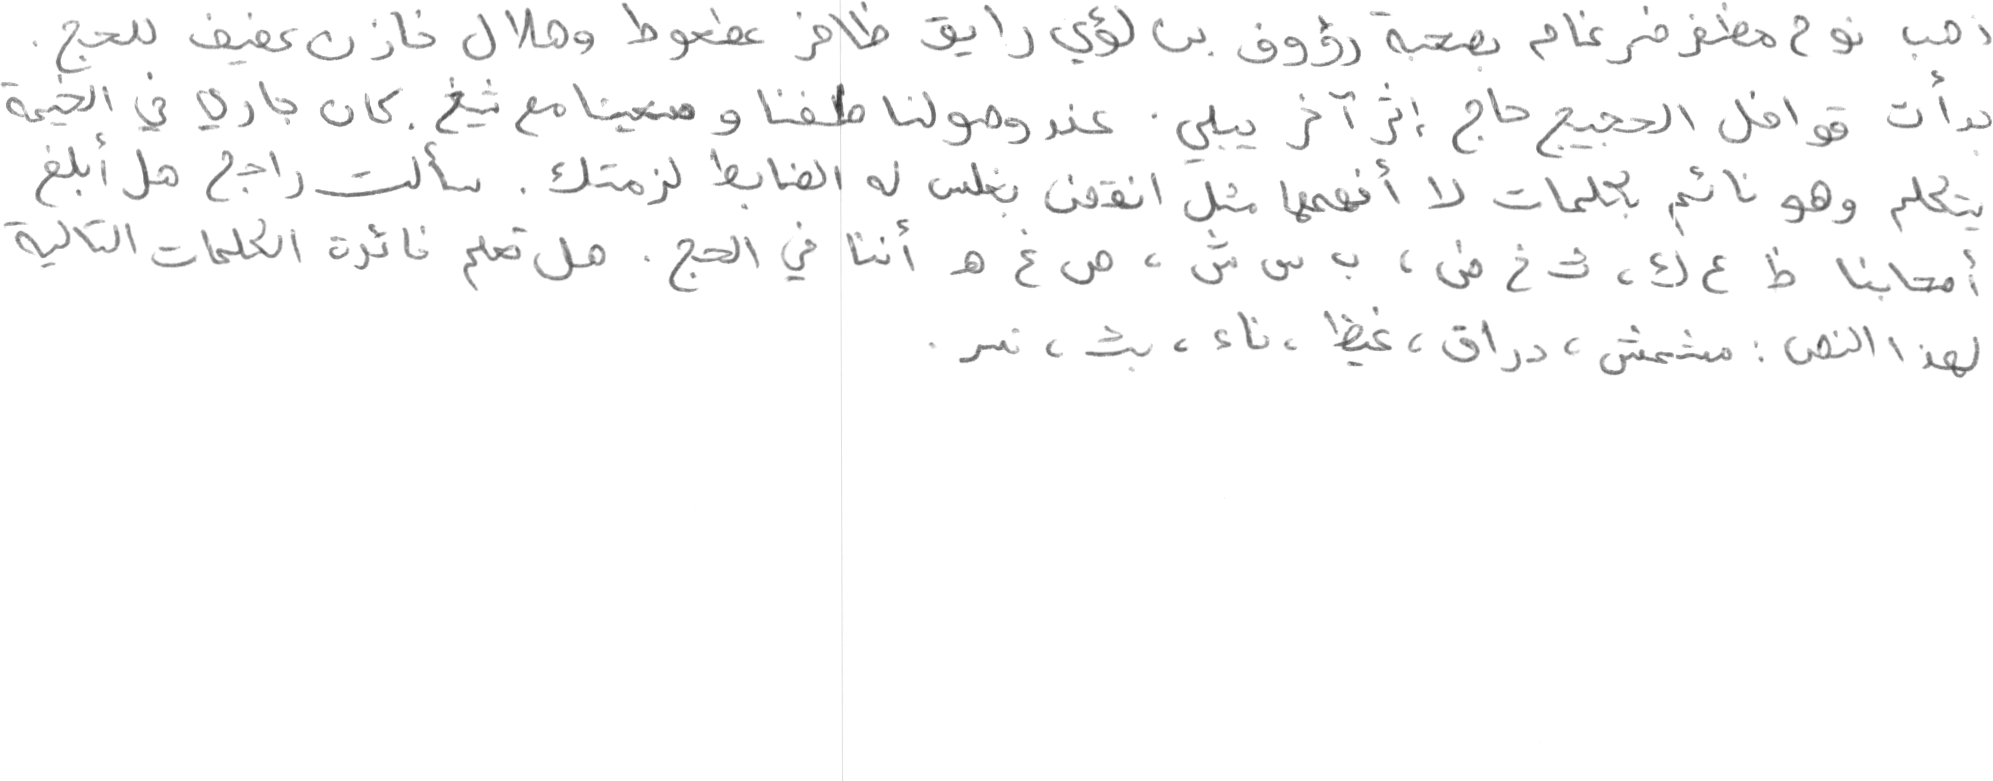 ذهب نوح مظفر ضرغام بصحبة رؤوف بن لؤي رايق ظافر عطعوط وهلال خازن عفيف للحج .
بدأت قوافل الحجيج حاج إثر آخر يبلي . عند وصولنا طفنا و سعينا مع شيخ . كان جاري في الخيمة
يتكلم وهو نائم بكلمات لا أفهمها مثل انقض بغلس له الضابط لزمتك . سألت راجح هل أبلغ
أصحابنا ظ ع ك ، ث خ ض ، ب س ش ، ص غ هـ أننا في الحج . هل تعلم فائدة الكلمات التالية
لهذا النص : مشمش ، دراق ، غيظ ، ناء ، بث ، نسر .